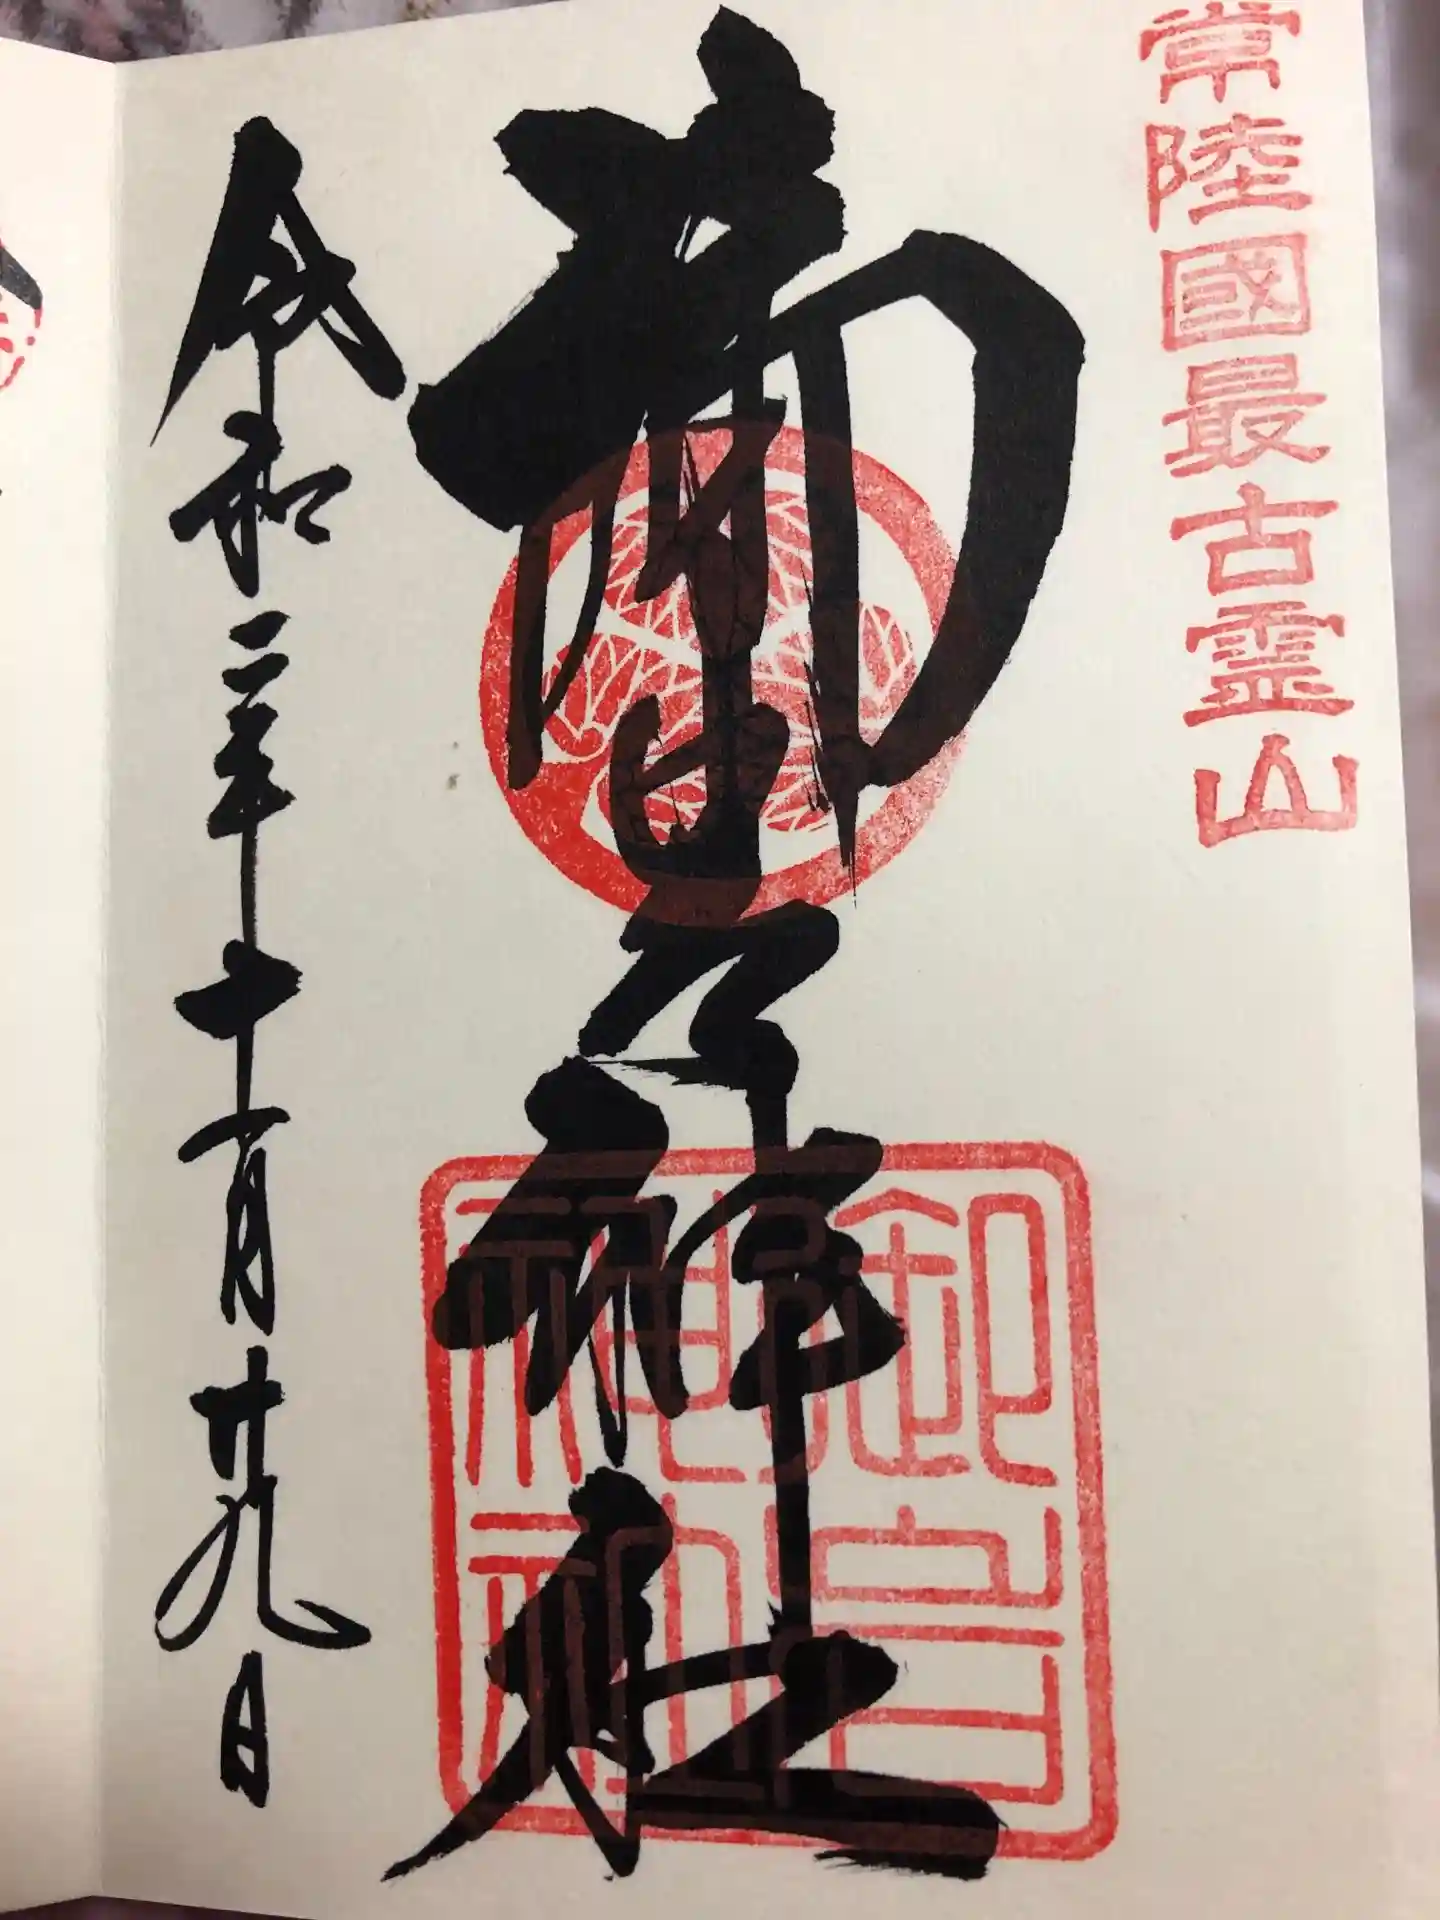 常陸國最古霊山
齋神社
御岩神社
令和二年十一月廿九日